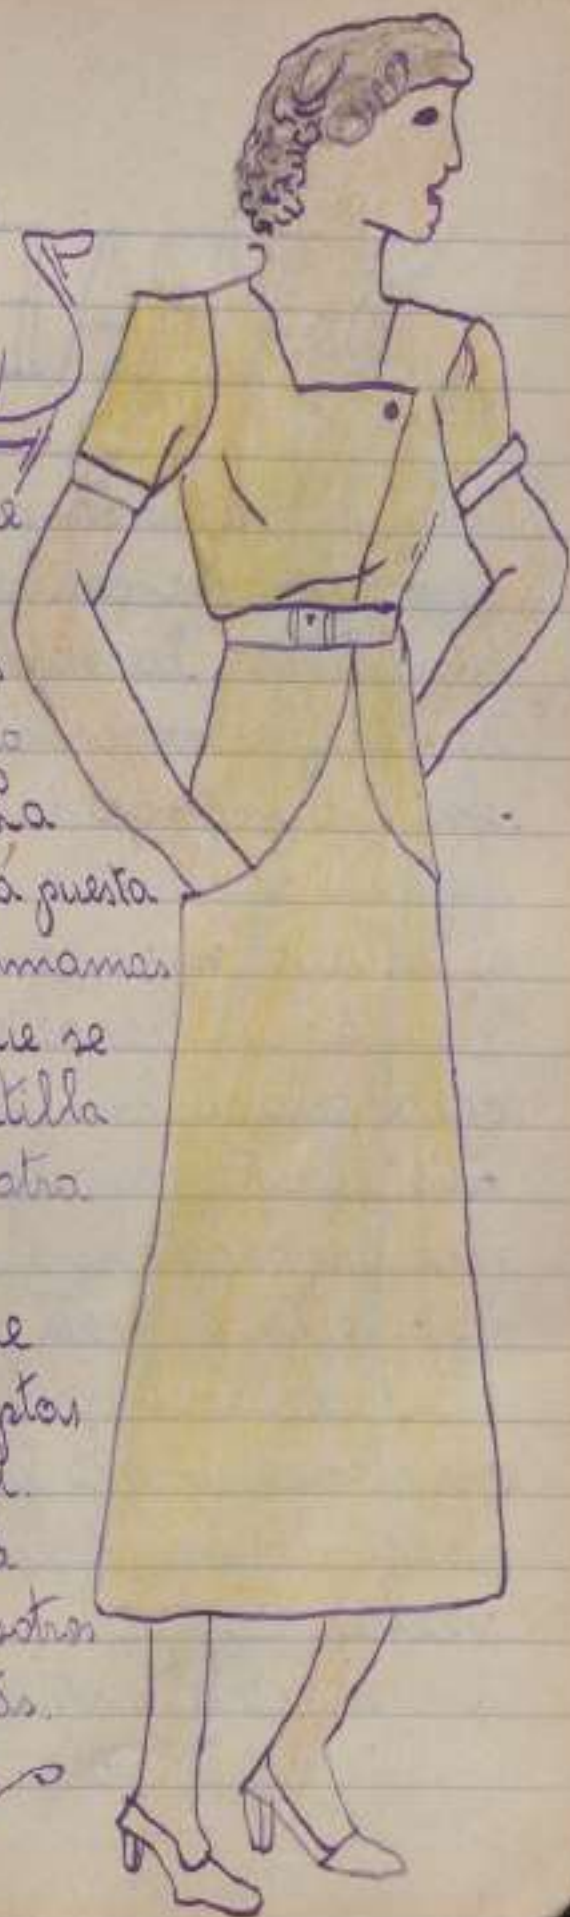 e
za
á puesta
mamas
ue se
tilla
atra
e
ptas
a
sotros
ás.